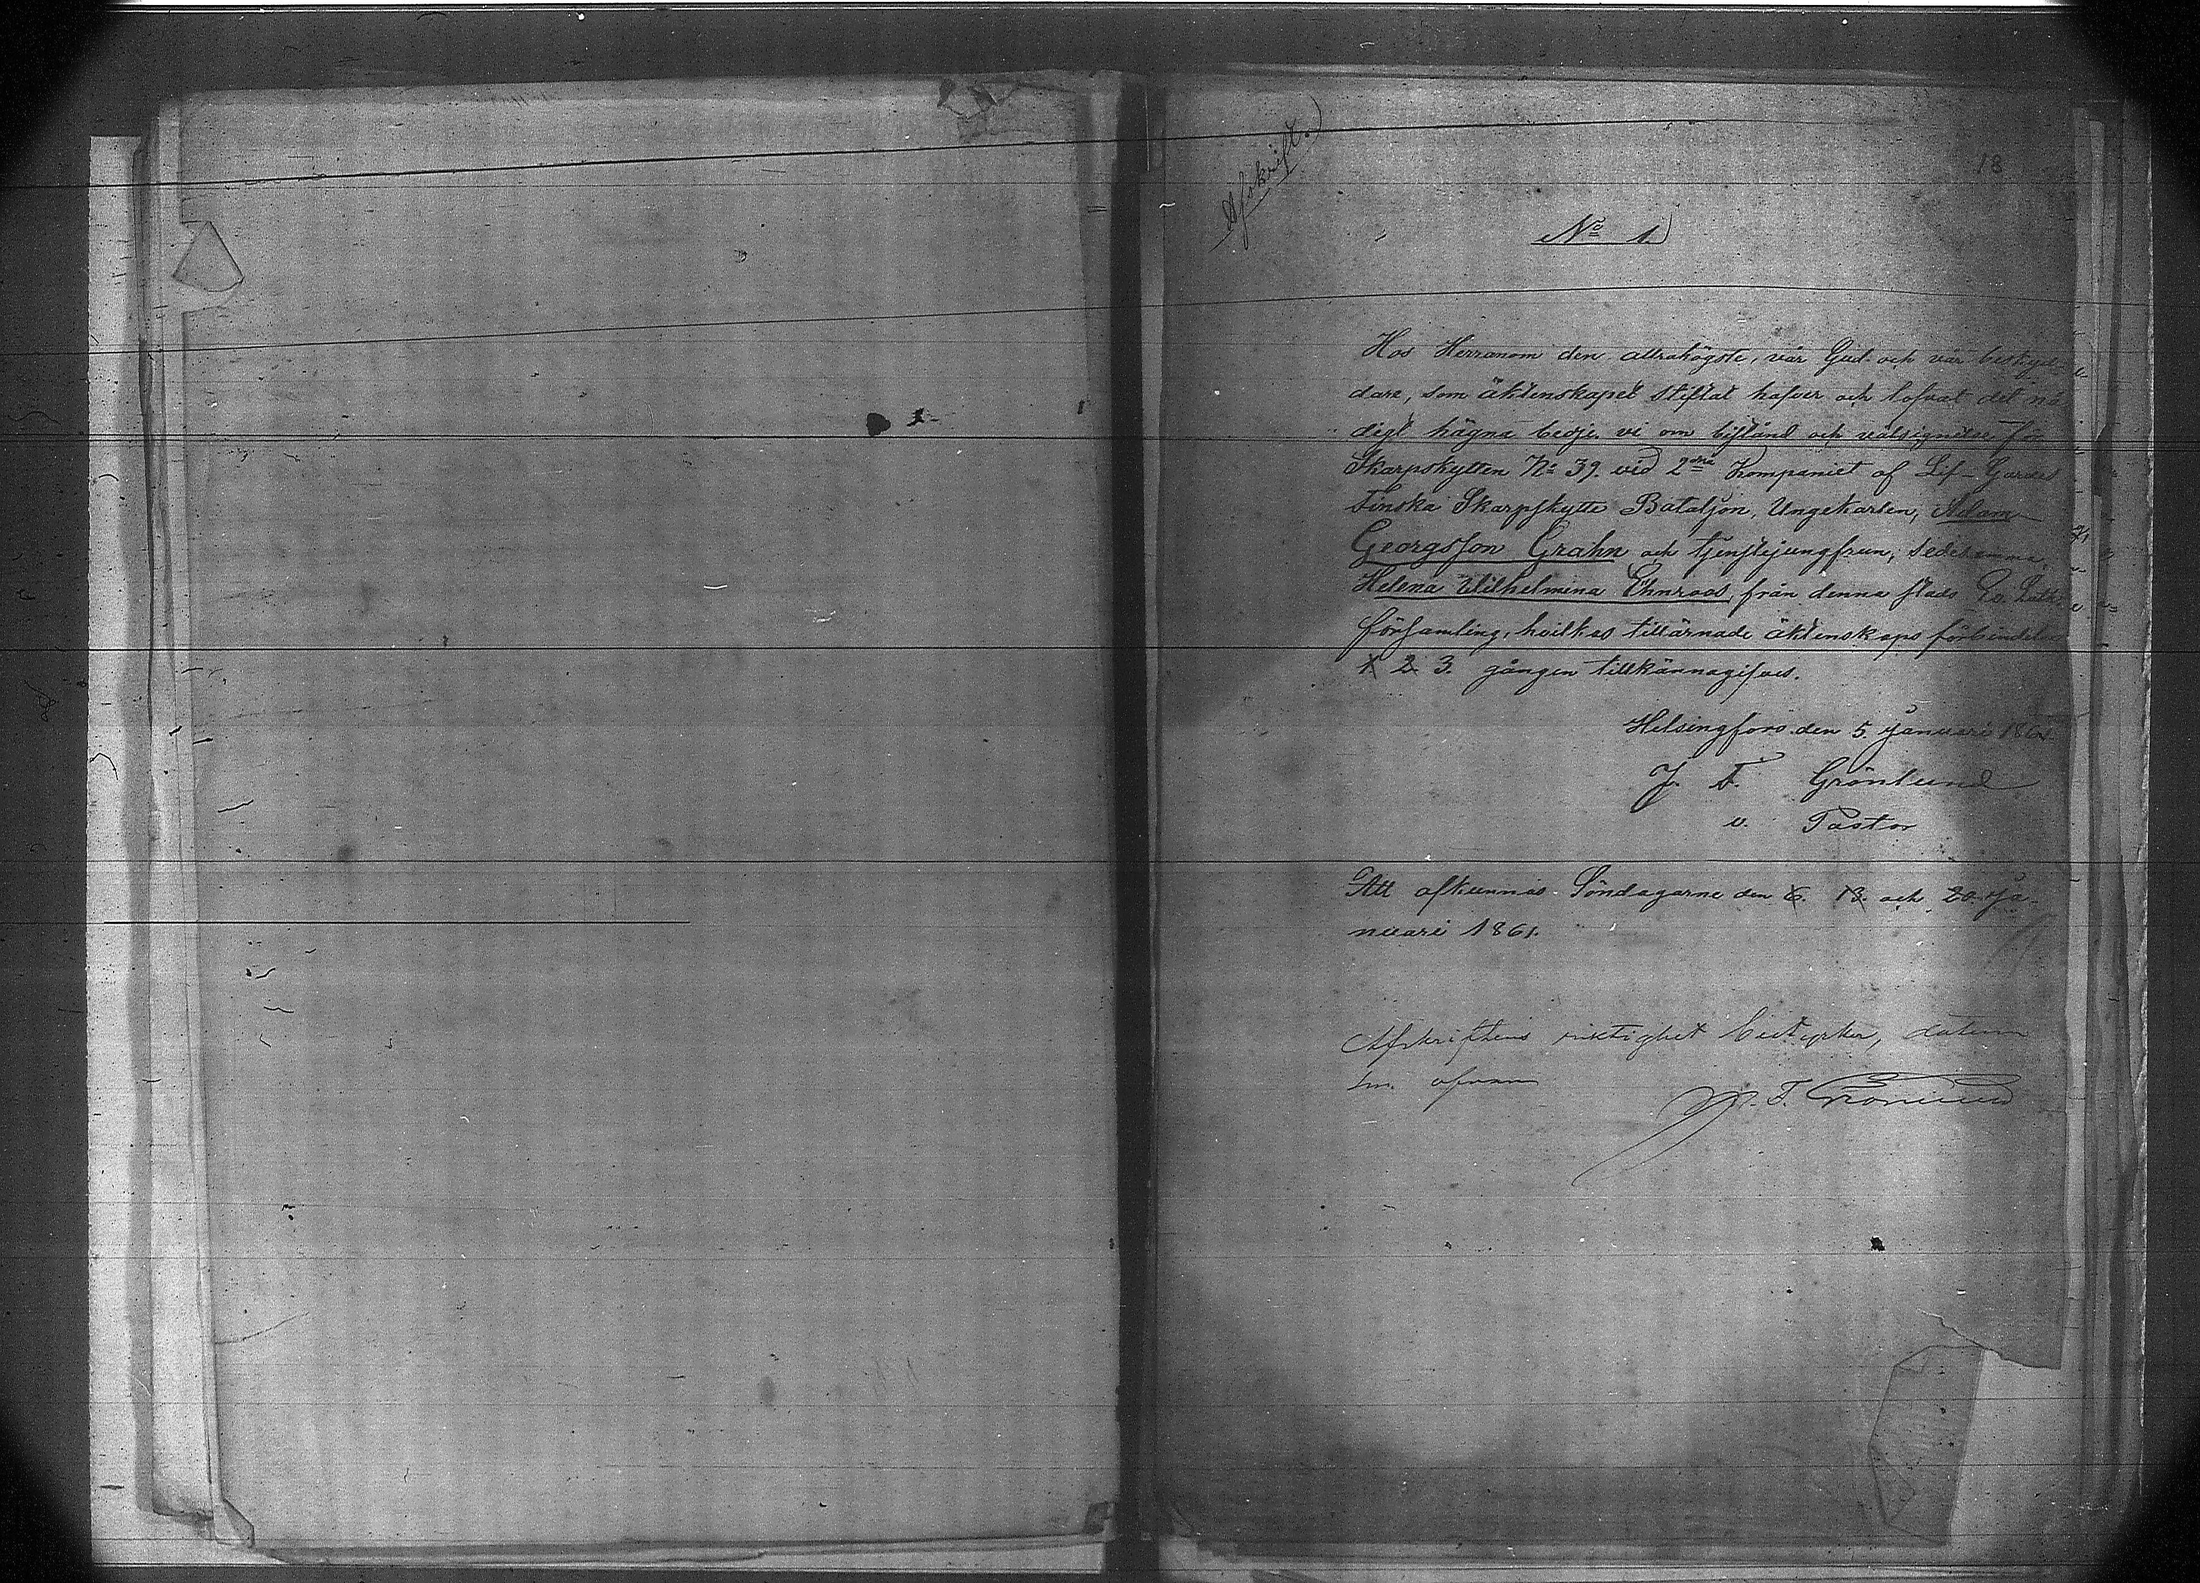 Afskrift.
18
No 1.
Hos Herranom den allrahögste, vår Gud och vår beskyd-
dare, som äktenskapet stiftat hafver och lofvat det nå
digt hägna bedje vi om bistånd och välsignelse för
Skarpskytten No 39. vid 2dra Kompaniet af Lif-Gardes
Finska Skarpskytte Bataljon, Ungekarlen, Adam
Georgsson Grahn och tjenstejungfrun, sedesamma,
Helena Wilhelmina Öhnroos, från denna stads Ev. Luth.
församling, hvilkas tillärnade äktenskaps förbindelse
1. 2. 3. gången tillkännagifves.
Helsingfors den 5 Januari 1861.
J. F. Grönlund
v. Pastor
Att afkunnas Söndagarne den 6. 13. och 20. Ja-
nuari 1861.
Afskriftens riktighet bestyrker, datum
som ofvan
J. F. Grönlund